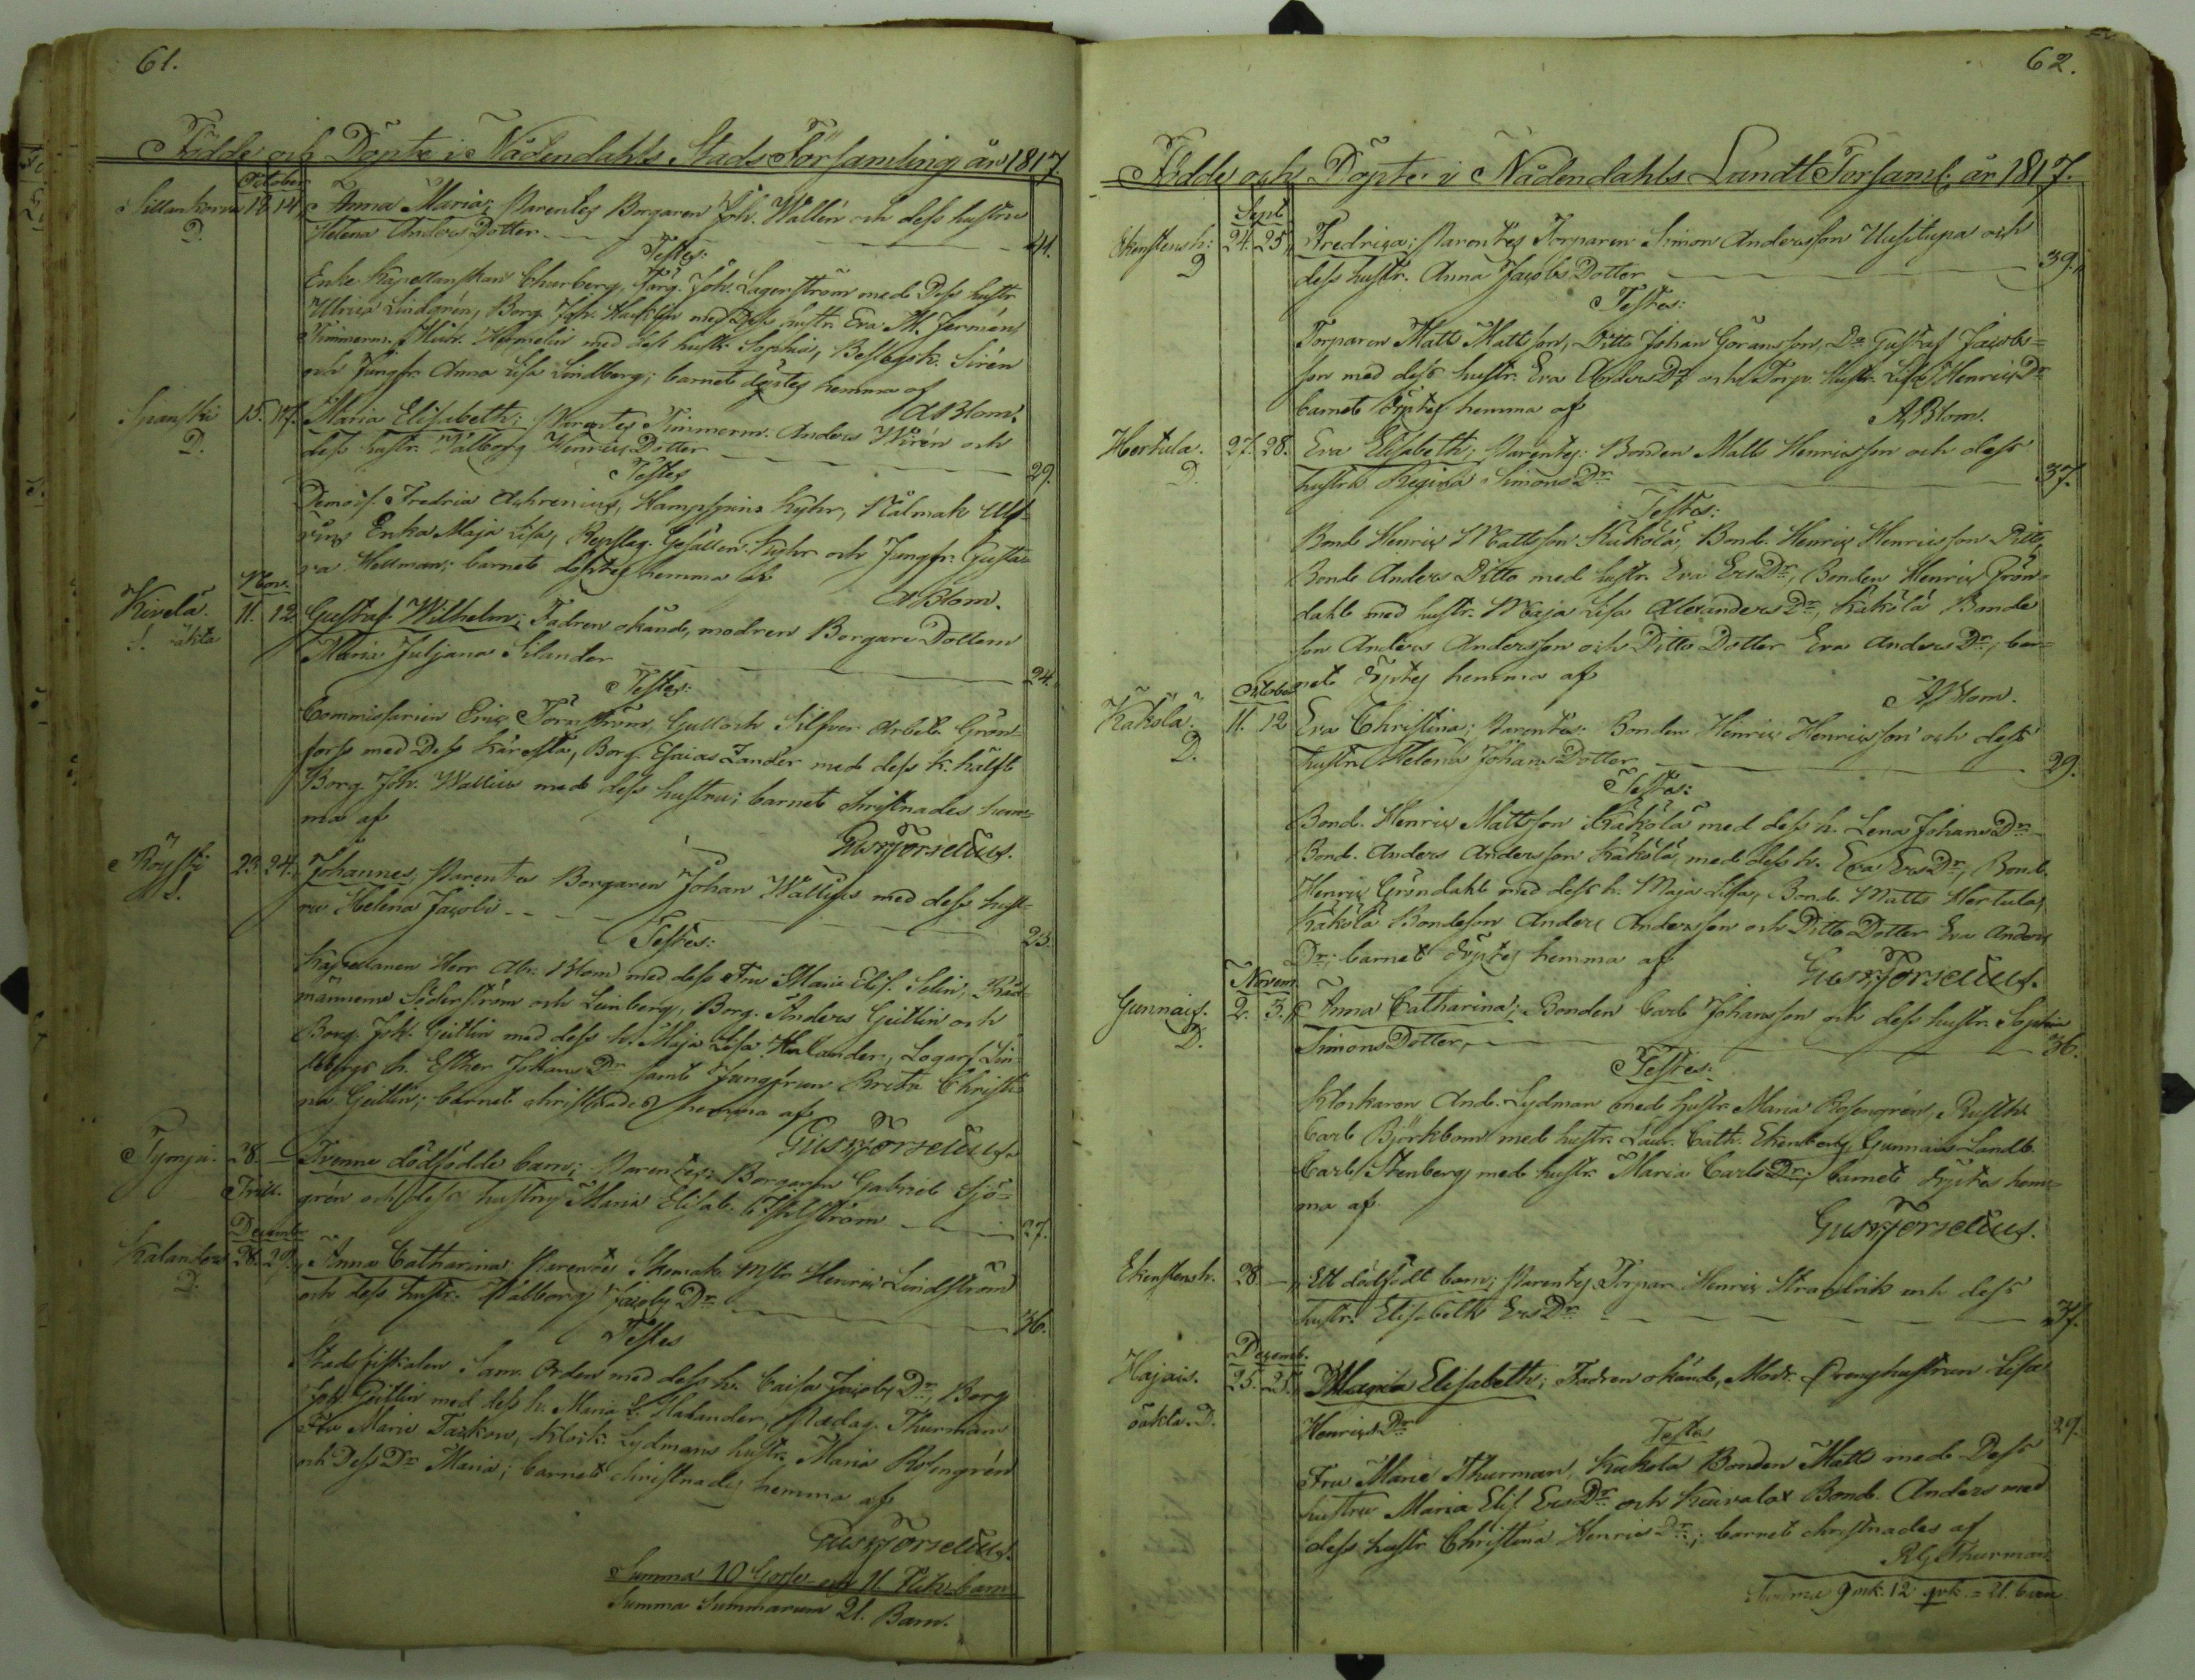 61.
Födde och Döpte i Nådendahls Stads Församling år 1817.
October
12 14 Anna Maria; Parentes Borgaren Joh. Wallén och dess hustru
D. Helena Anders Dotter 41.
Testes:
Enke Kapellanskan Churberg, Färg. Joh. Lagerström med Dess hustr
Ulrica Lindgrén, Borg. Joh. med Dess hustr. Eva M. Fermén,
Timmerm. Hermelin med dess hustr. Sophia, Sirén
och Jungfr. Anna Lisa Lindberg; barnet döptes hemma af
A Blom.
Spanski 15. 17. Maria Elisabeth; Parentes Timmerm. Anders Wirén och
D. dess hustr. Walborg Henrics Dotter 29.
Testes
Demois. Fredrica Achrenius, Kyhr,
Enka Maja Lisa, Repslag. Gesällen Kyhr och Jungfr. Gusta-
va Hellman; barnet döptes hemma af
A Blom.
Nov.
Kivelä. 11. 12. Gustaf Wilhelm; Fadren okänd, modren Borgare Dottern
Maria Juliana Silander 24.
Testes:
Commissarien Eric Törnström, Gull och Silfver Arbet. Grön-
forss med Dess Käresta, Borg. Esaias Zander med dess k. hälft
Borg. Joh. Wallius med dess hustru; barnet christnades hem-
ma af
Gust. Forselius.
Röysti 23. 24. Johannes, Parentes Borgaren Johan Wallius med dess hust-
ru Helena Jacobi 25.
Testes:
Kapellanen Herr Abr. Blom med dess Fru Maria Elis. Selin, Råd-
männerne Söderström och Leinberg, Borg. Anders Geitlin och
Borg. Joh. Geitlin med dess h. Maja Lisa Halander, Logarf. Lin-
bergs h. Esther Johans Dr samt Jungfrun Brita Christi-
na Geitlin; barnet christnades hemma af
Gust. Forselius.
28. — Tvenne dödfödde barn; Parentes: Borgaren Gabriel Sjö-
Trill. grén och dess hustru Maria Elisab. 27.
December
Kalanders 28. 29. Anna Catharina; Parentes Skomak. Mstr Henric Lindström
D. och dess hustr. Walborg Jacobs Dr 36.
Testes
Stadsfiskalen Sam. Orden med dess h. Caisa Jacobs Dr, Borg
Joh. Geitlin med dess h. Maria L. Halander, Pædag. Thurmans
Fru Maria, Klock. Lydmans hustr. Maria Rosengrén
och Dess Dr Maria; barnet christnades hemma af
Gust. Forselius.
Summa 10 Gosse- och 11 barn
Summa Summarum 21. Barn.
62.
Födde och Döpte i Nådendahls Landt Forsaml. år 1817.
Sept
Ekenstensh: 24. 25. Fredrica; Parentes Torparen Simon Andersson Uusitupa och
D dess hustr. Anna Jacobs Dotter 39.
Testes:
Torparen Matts Mattsson, Ditto Johan Göransson, Do Gustaf Jacobs-
son med dess hustr. Eva Anders Dr och Torp. hustr. Lisa Henrics Dr
barnet döptes hemma af
A Blom.
Hertula. 27. 28. Eva Elisabeth; Parentes: Bonden Matts Henricsson och dess
D. hustru Regina Simons Dr 37.
Testes:
Bond. Henric Mattsson Käkölä, Bond. Henric Henricsson Ditto,
Bond. Anders Ditto med hustr. Eva Ers Dr, Bonden Henric Grön-
dahl med hustr. Maja Lisa Alexanders Dr, Käkölä Bonde
son Anders Andersson och Ditto Dotter Eva Anders Dr; bar-
net döptes hemma af
A Blom.
October
Käkölä. 11. 12 Eva Christina; Parentes: Bonden Henric Henricsson och dess
D. hustru Helena Johans Dotter 29.
Testes:
Bond. Henric Mattsson Käkölä med dess h. Lena Johans Dr
Bond. Anders Andersson Käkölä, med dess h. Eva Ers Dr, Bond.
Henric Gröndahl med dess h. Maja Lisa, Bond. Matts Hertula,
Käkölä Bondeson Anders Andersson och Ditto Dotter Eva Anders
Dr; barnet döptes hemma af
Gust. Forselius.
Novem.
Gunnais. 2. 3. Anna Catharina; Bonden Carl Johansson och dess hustr. Sophia
D. Simons Dotter, 36.
Testes:
Klockaren And. Lydman med hustr. Maria Rosengrén, Rusth.
Carl Björkbom med hustr. Cath. Ekenberg, Gunnais Landb.
Carl Stenberg med hustr. Maria Carls Dr; barnet döptes hem-
ma af
Gust. Forselius.
Ekenstensh. 28. — Ett dödfödt barn; Parentes Torpar. Henric Strandvik och dess
hustr. Elisabeth Ers Dr 37.
Decemb.
Hajais. 25. Maria Elisabeth; Fadren okänd, Modr. Drenghustrun Lisa
oäkta. D. Henrics Dr 29.
Testes
Fru Maria Thurman, Käkola Bonden Matts med Dess
hustru Maria Elis. Ers Dr och Bond. Anders med
dess hustr. Christina Henrics Dr; barnet christnades af
Thurman.
Summa 9 mk. 12 qvk. = 21. barn